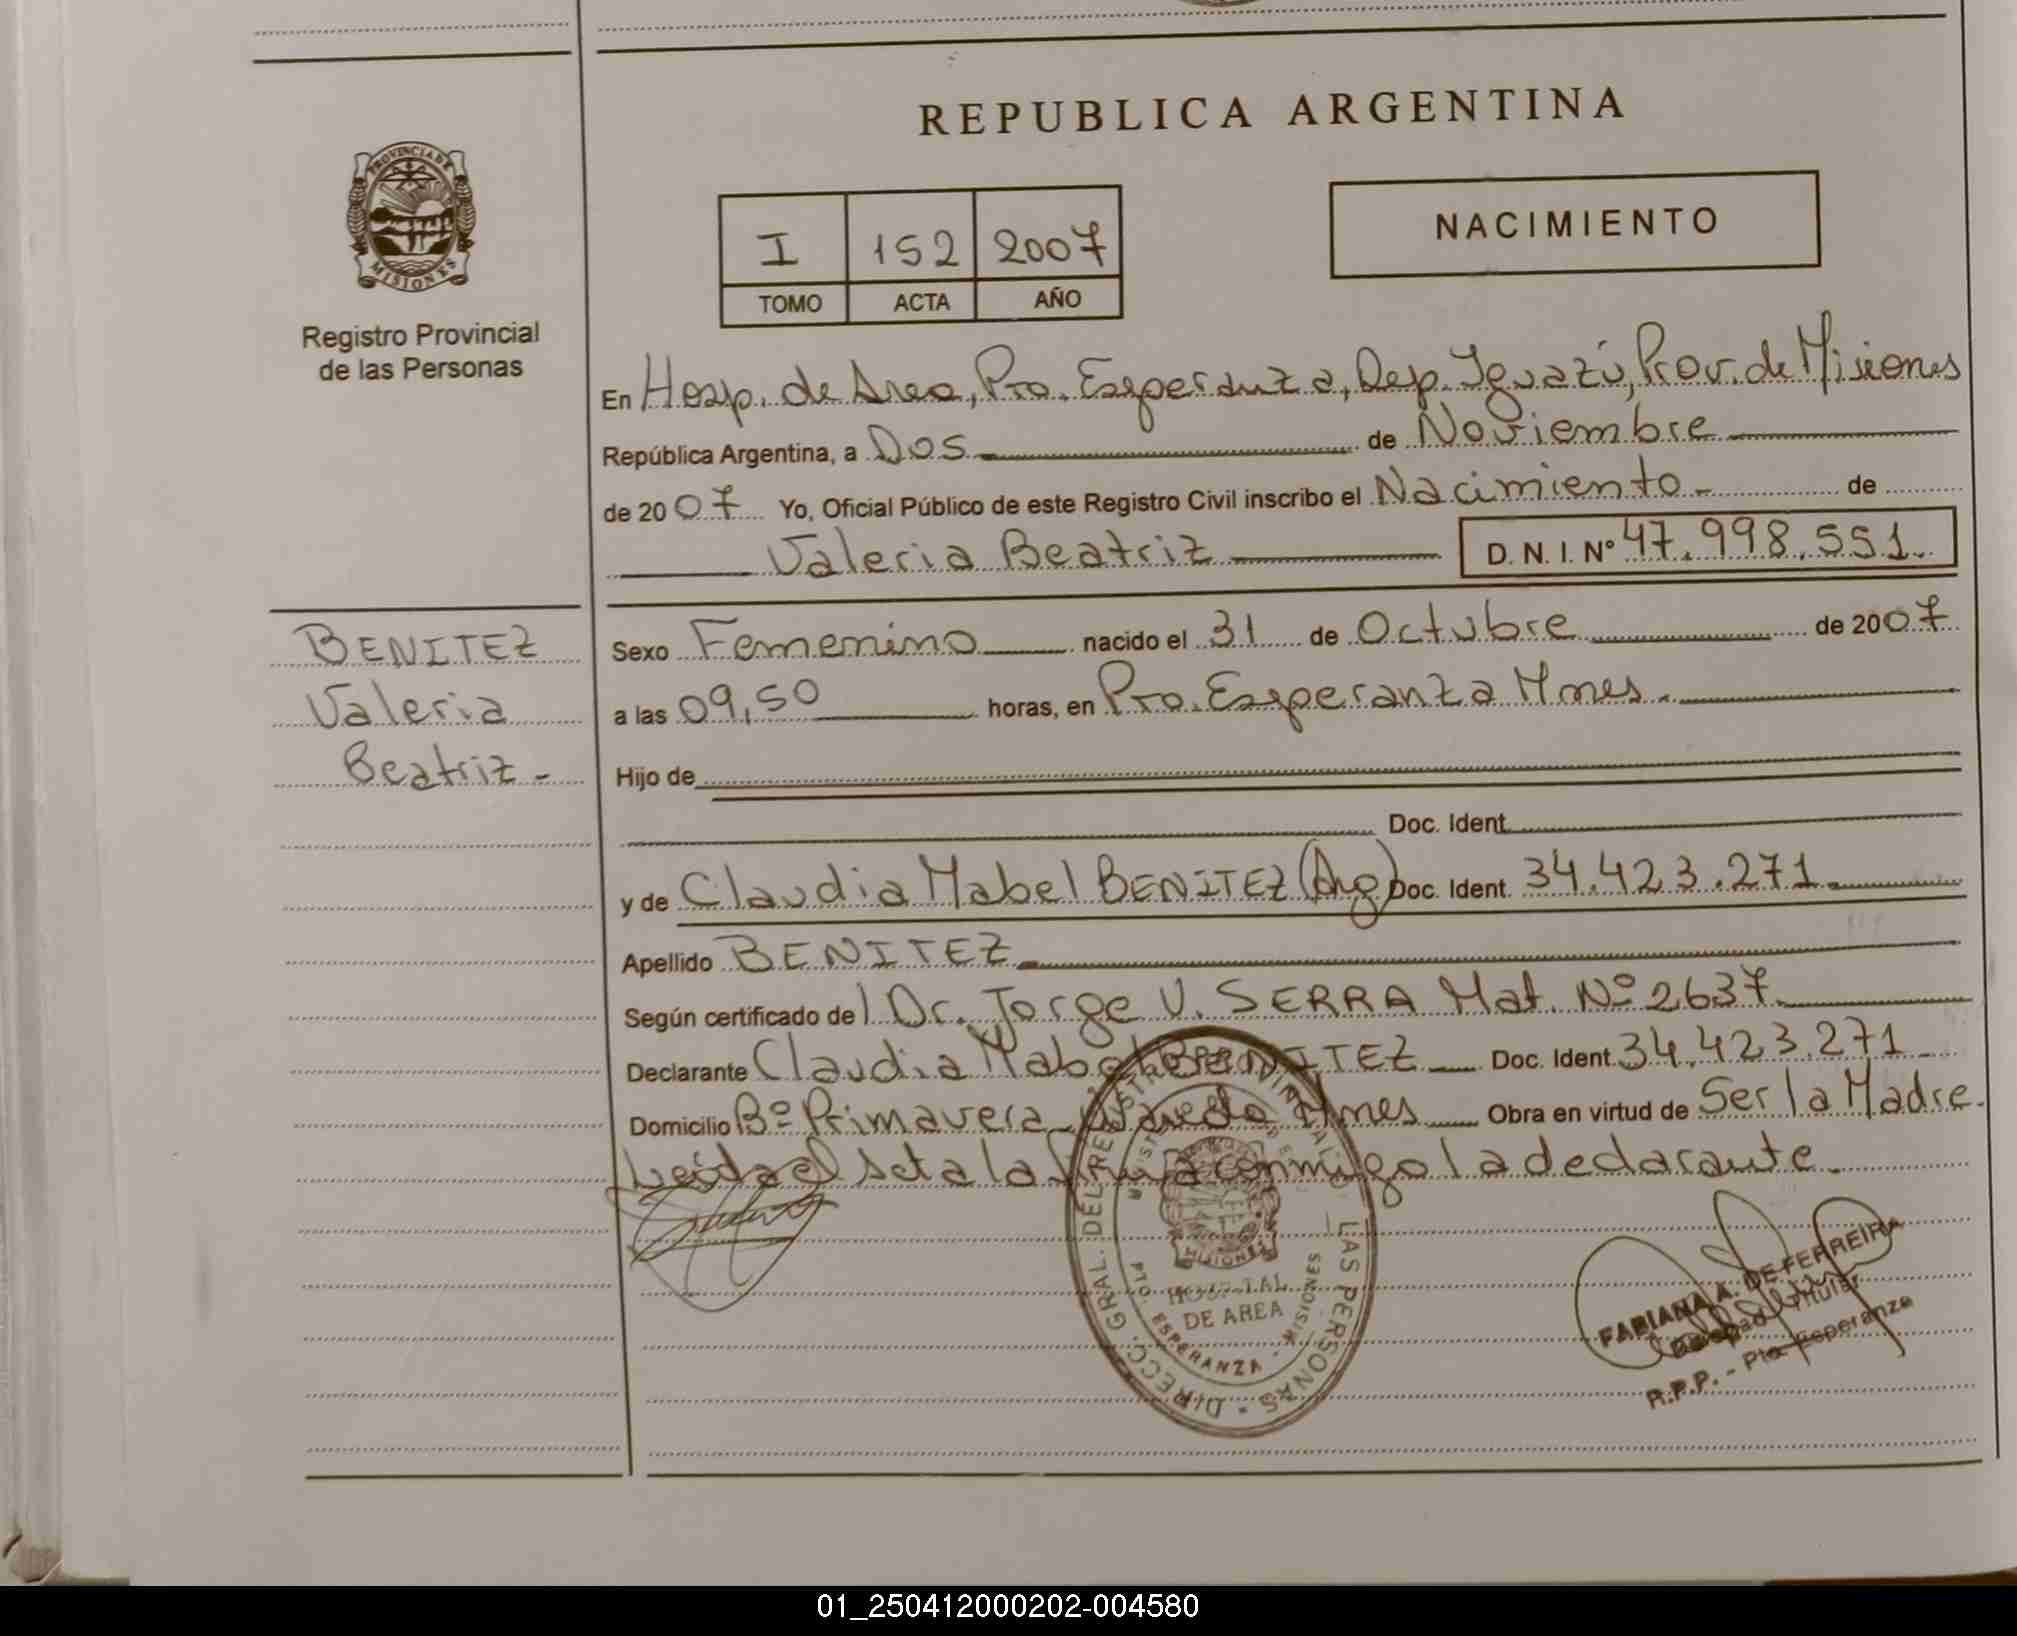 REPUBLICA ARGENTINA
PROVINCIA DE
MISIONES
Registro Provincial
de las Personas
I 152 2007
TOMO ACTA AÑO
NACIMIENTO
En Hosp. de Area, Pto. Esperanza, Dep. Iguazú, Prov. de Misiones
República Argentina, a Dos de Noviembre
de 2007 Yo, Oficial Público de este Registro Civil inscribo el Nacimiento - de
Valeria Beatriz D. N. I. Nº 47.998.551.
BENITEZ
Valeria
Beatriz -
Sexo Femenino nacido el 31 de Octubre de 2007
a las 09,50 horas, en Pto. Esperanza Mnes.
Hijo de
Doc. Ident.
y de Claudia Mabel BENITEZ (Arg) Doc. Ident. 34.423.271.
Apellido BENITEZ
Según certificado del Dr. Jorge V. SERRA Mat. Nº 2637
Declarante Claudia Mabel BENITEZ Doc. Ident. 34.423.271
Domicilio Bº Primavera Mnes Obra en virtud de Ser la Madre.
Leída el acta la firma conmigo la declarante.
DIRECC. GRAL. DEL REGISTRO PROVINCIAL LAS PERSONAS
MISIONES
HOSPITAL
DE AREA
PTO. ESPERANZA - MISIONES
FABIANA A. DE FERREIRA
Titular
R.P.P. - Pto Esperanza
01_250412000202-004580